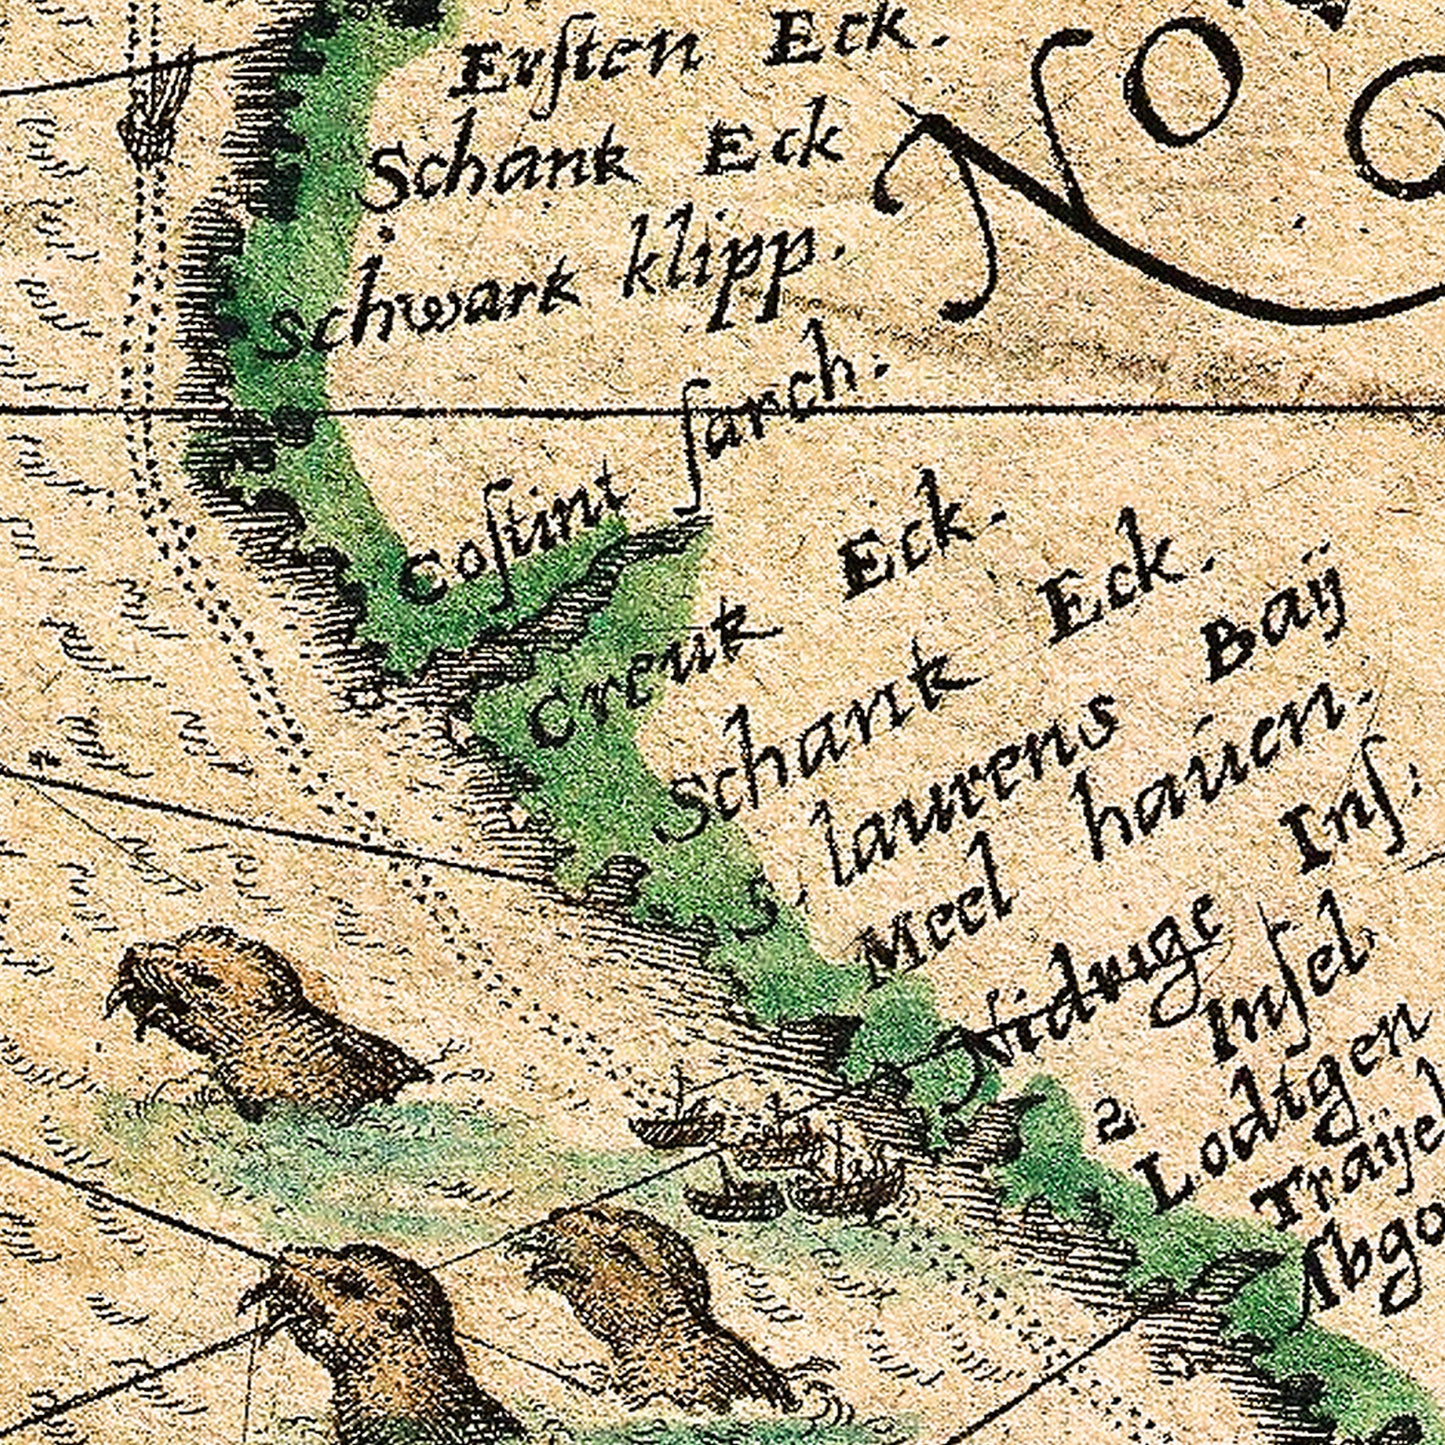 Erſten Eck.
Schank Eck
Schwark klipp.
Coſtint ſarch:
Creuk Eck.
Schank Eck.
S. laurens Baij
Meel hauen.
Nidrige Inſ:
2 Inſel
Lodigen